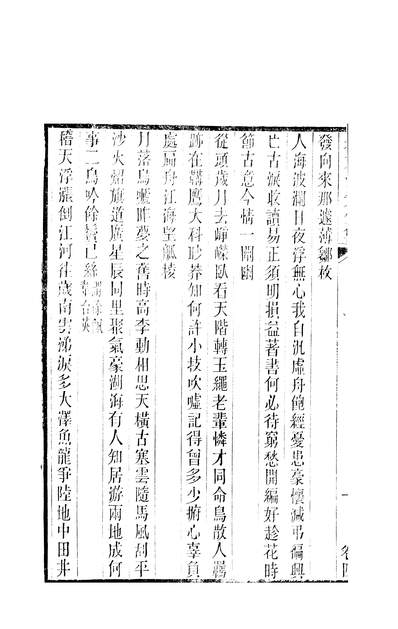 發向來那遽薄鄒枚
人海波瀾日夜浮無心我自汎虛舟飽經憂患豪懷減弔徧興
亡古淚收讀易正須明損益著書何必待窮愁開編好趁花時
節古意今情一闡幽
從頭歲月去崢嶸臥看天階轉玉繩老輩憐才同命鳥散人羈
跡在鞲鷹大科砂莽知何許小技吹噓記得曾多少撫心辜負
處扁舟江海望觚棱
月落烏嗁昨夢之舊時高李動相思天橫古塞雲隨馬風刮平
沙火熠旗道廣星辰同里聚氣豪湖海有人知居游兩地成何
事二鳥吟餘鬢已絲
稽天浮漲倒江河往歲南雲涕淚多大澤魚龍爭陸地中田井
卷四